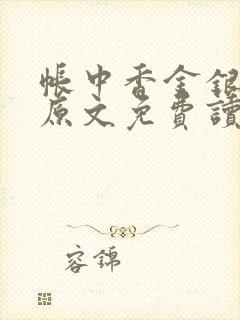 帳中香金銀
原文免費讀
容錦